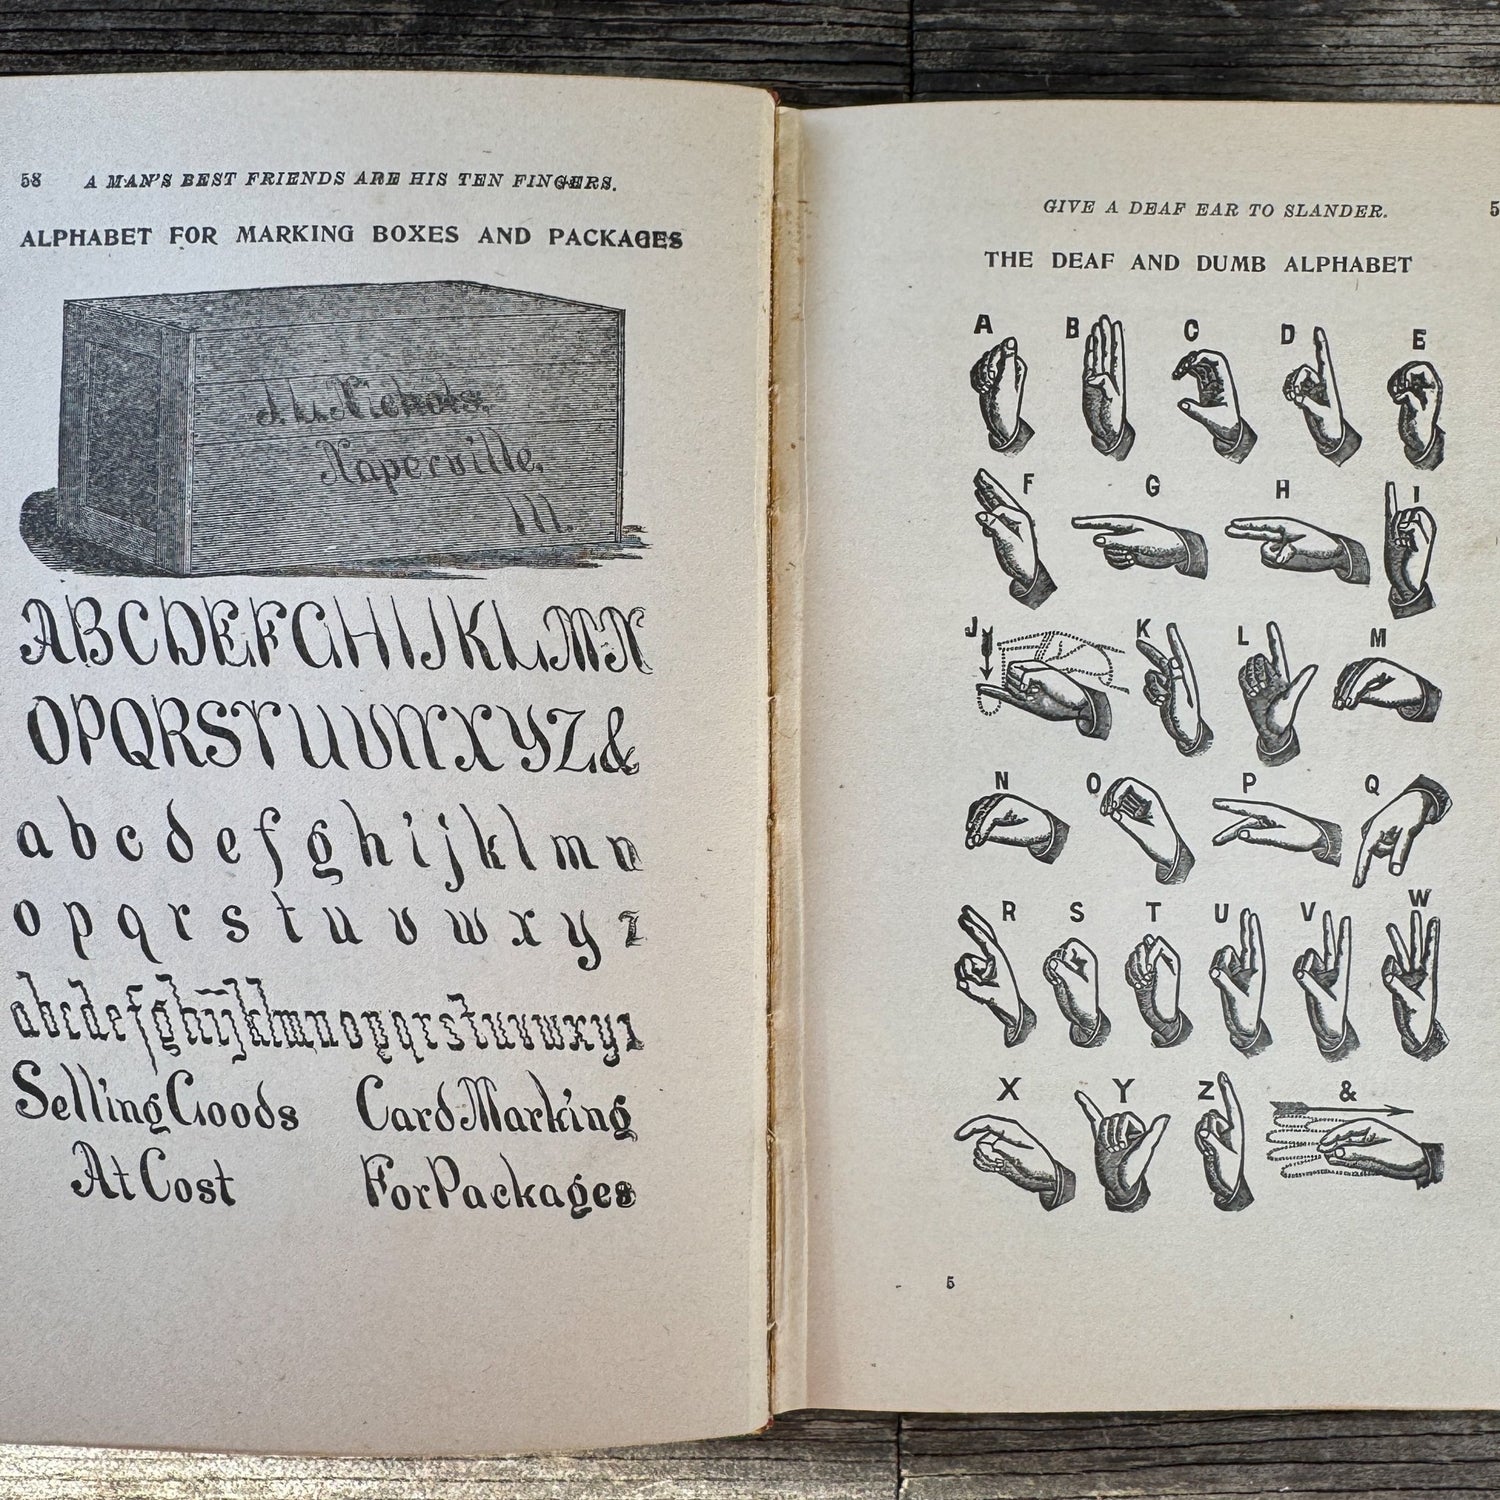 58 A MAN'S BEST FRIENDS ARE HIS TEN FINGERS.
ALPHABET FOR MARKING BOXES AND PACKAGES
J. L. Nichols,
Naperville,
Ill.
A B C D E F G H I J K L M N
O P Q R S T U V W X Y Z &
a b c d e f g h i j k l m n
o p q r s t u v w x y z
a b c d e f g h i j k l m n o p q r s t u v w x y z
Selling Goods Card Marking
At Cost For Packages
GIVE A DEAF EAR TO SLANDER. 5
THE DEAF AND DUMB ALPHABET
A B C D E
F G H I
J K L M
N O P Q
R S T U V W
X Y Z &
5